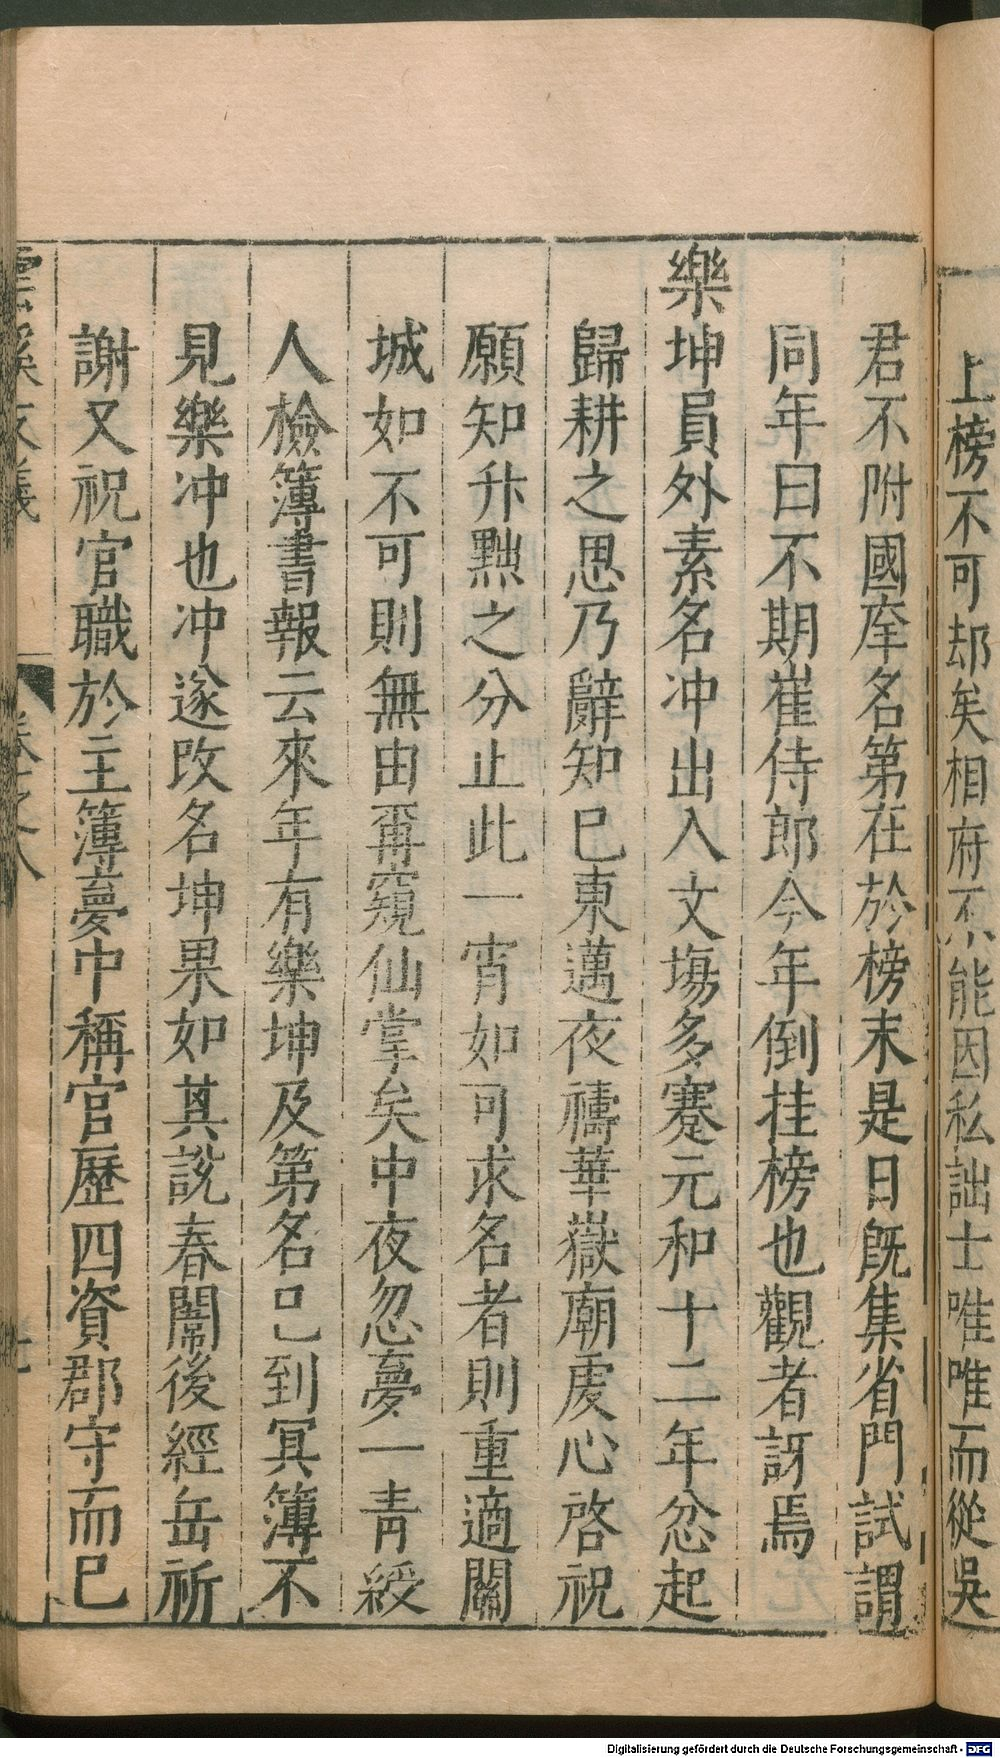 上榜不可却矣相府不能因私詘士唯唯而從吳
君不附國庠名第在於榜末是日旣集省門試謂
同年曰不期崔侍郎今年倒挂榜也觀者訝焉
樂坤員外素名冲出入文塲多蹇元和十二年忿起
歸耕之思乃辭知巳東邁夜禱華嶽廟虔心啓祝
願知升黜之分止此一宵如可求名者則重適關
城如不可則無由再窺仙掌矣中夜忽夢一青綬
人檢簿書報云來年有樂坤及第名已到冥簿不
見樂冲也冲遂改名坤果如其說春闈後經岳祈
謝又祝官職於主簿夢中稱官歷四資郡守而巳
雲溪友議
卷之八
Digitalisierung gefördert durch die Deutsche Forschungsgemeinschaft - DFG